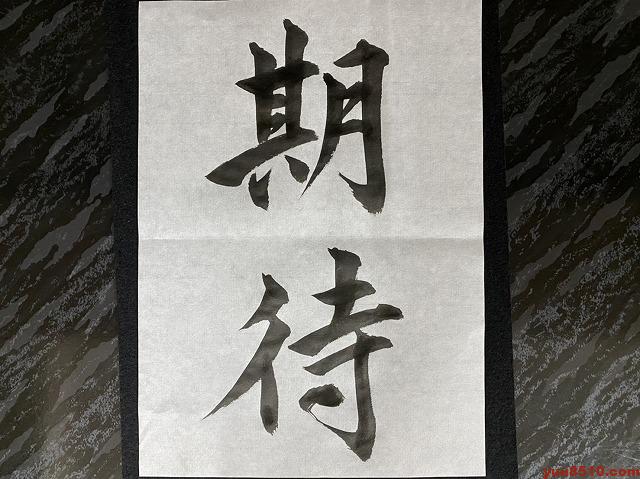 期
待
yuu8510.com